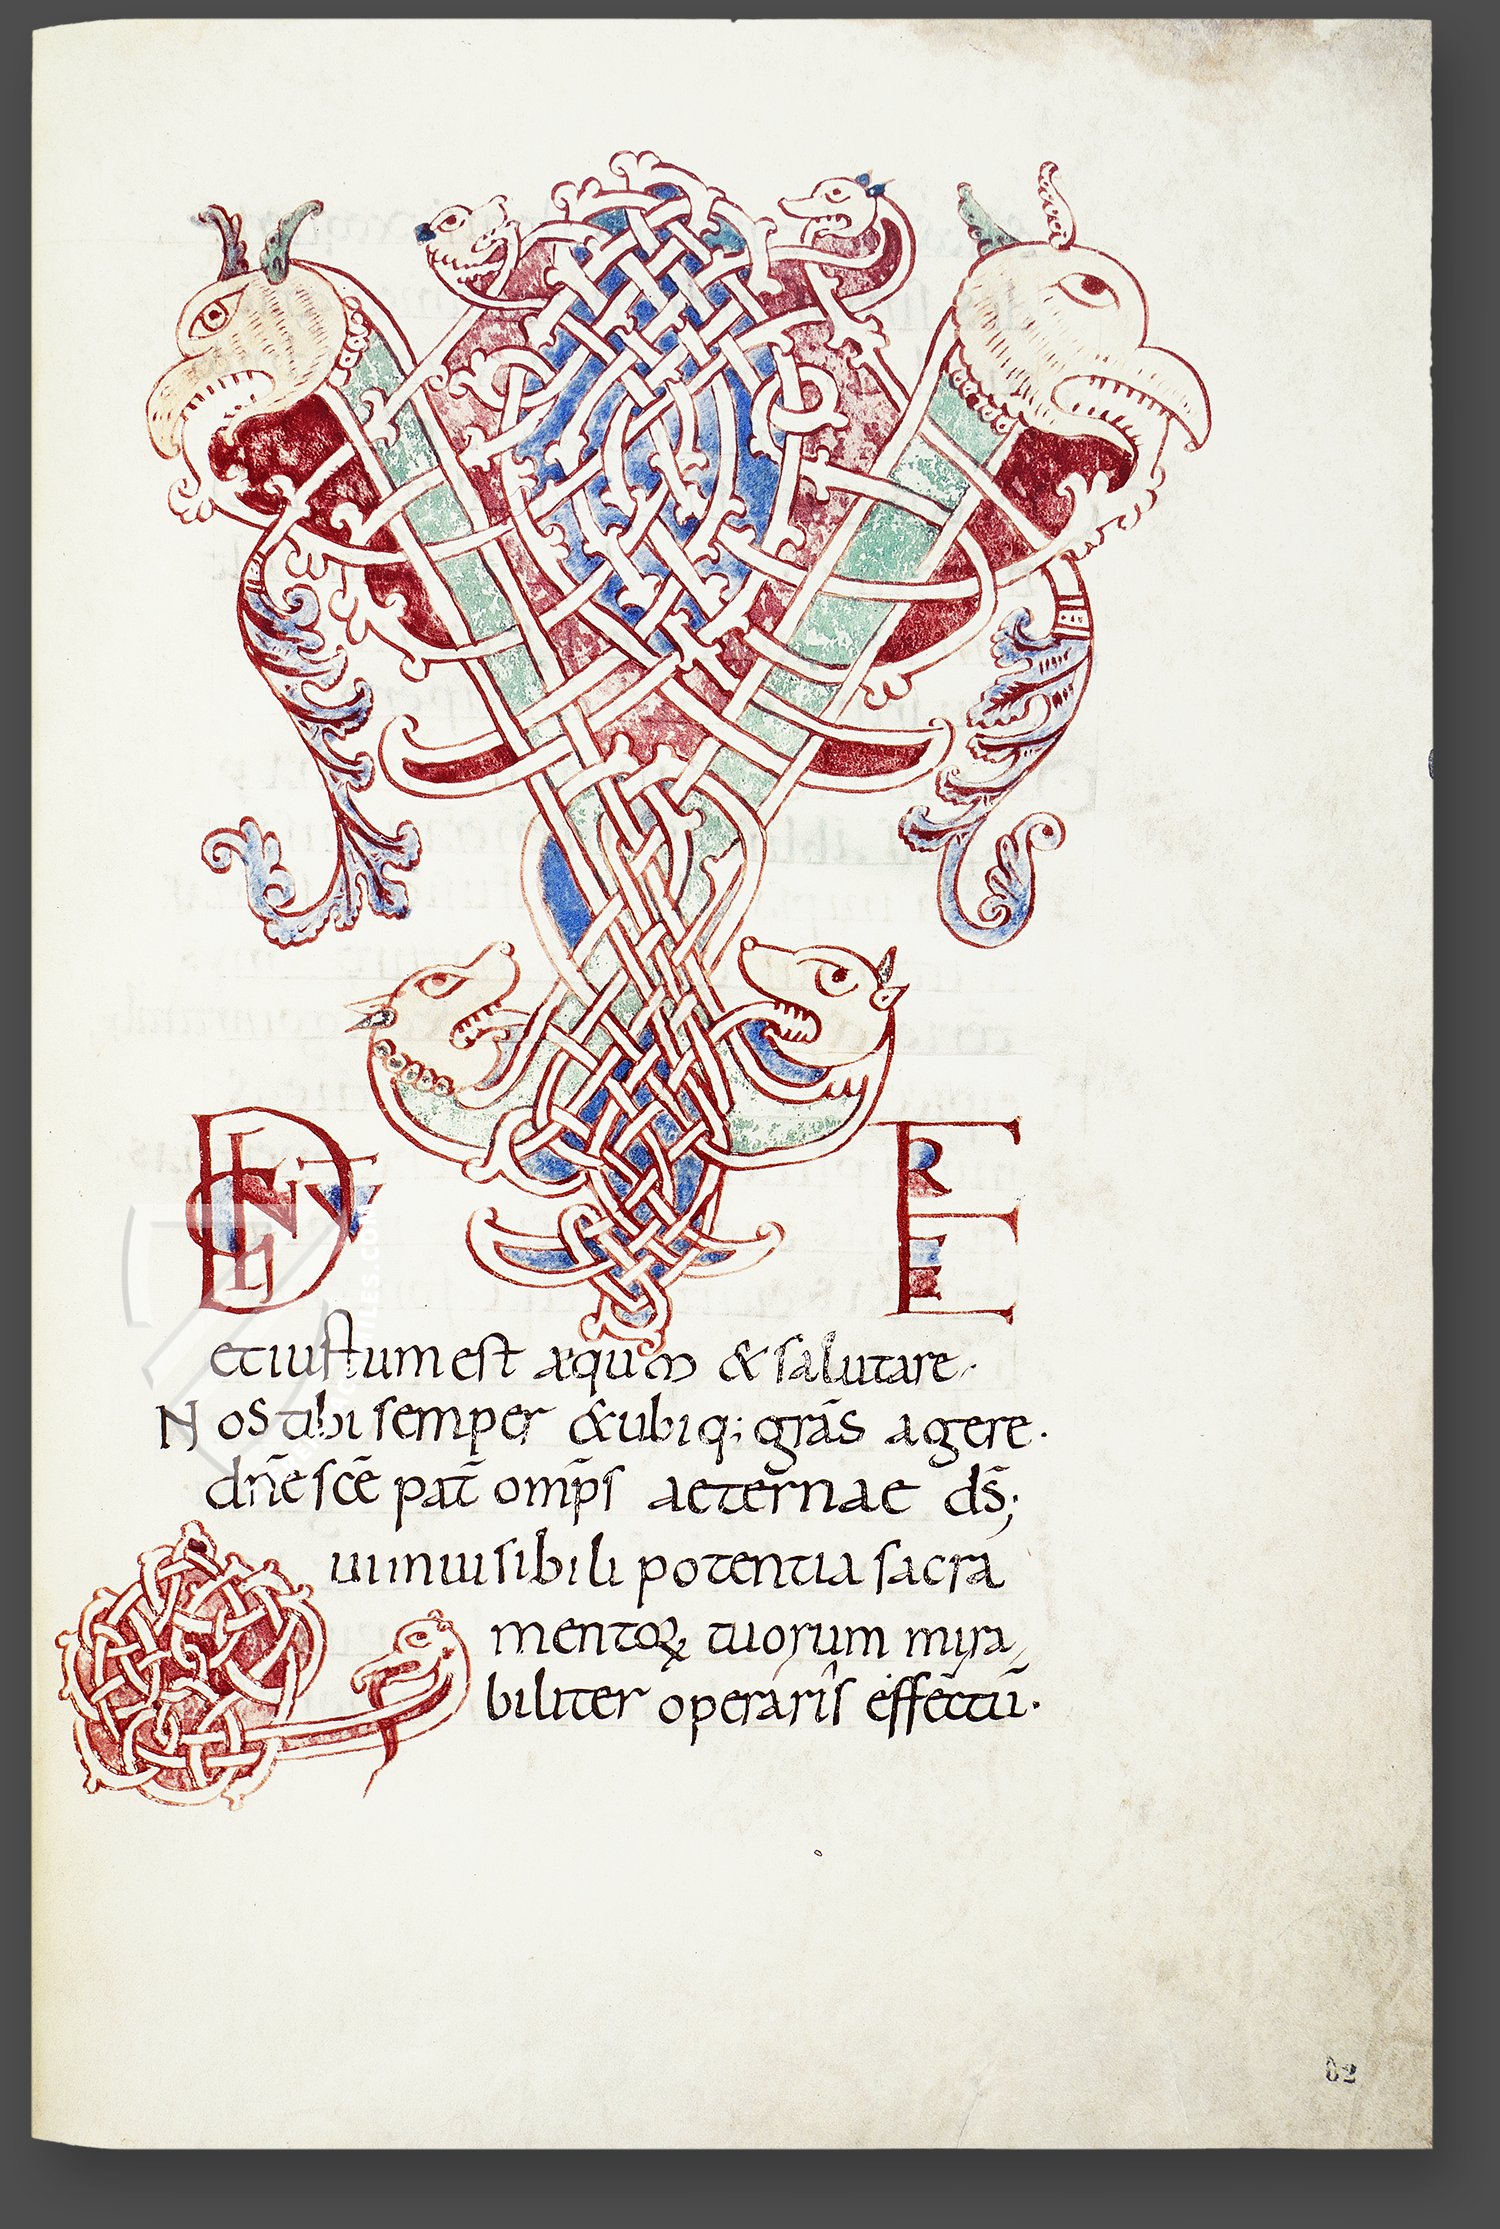 V
ERE
DIGNV̄
et iustum est æquum & salutare.
Nos tibi semper & ubiq; grās agere.
dn̄e scē pat̄ omp̄s aeternae ds̄;
Qui inuisibili potentia sacra
mentoꝝ tuorum mira
biliter operaris effectū.
82
MILES.COM